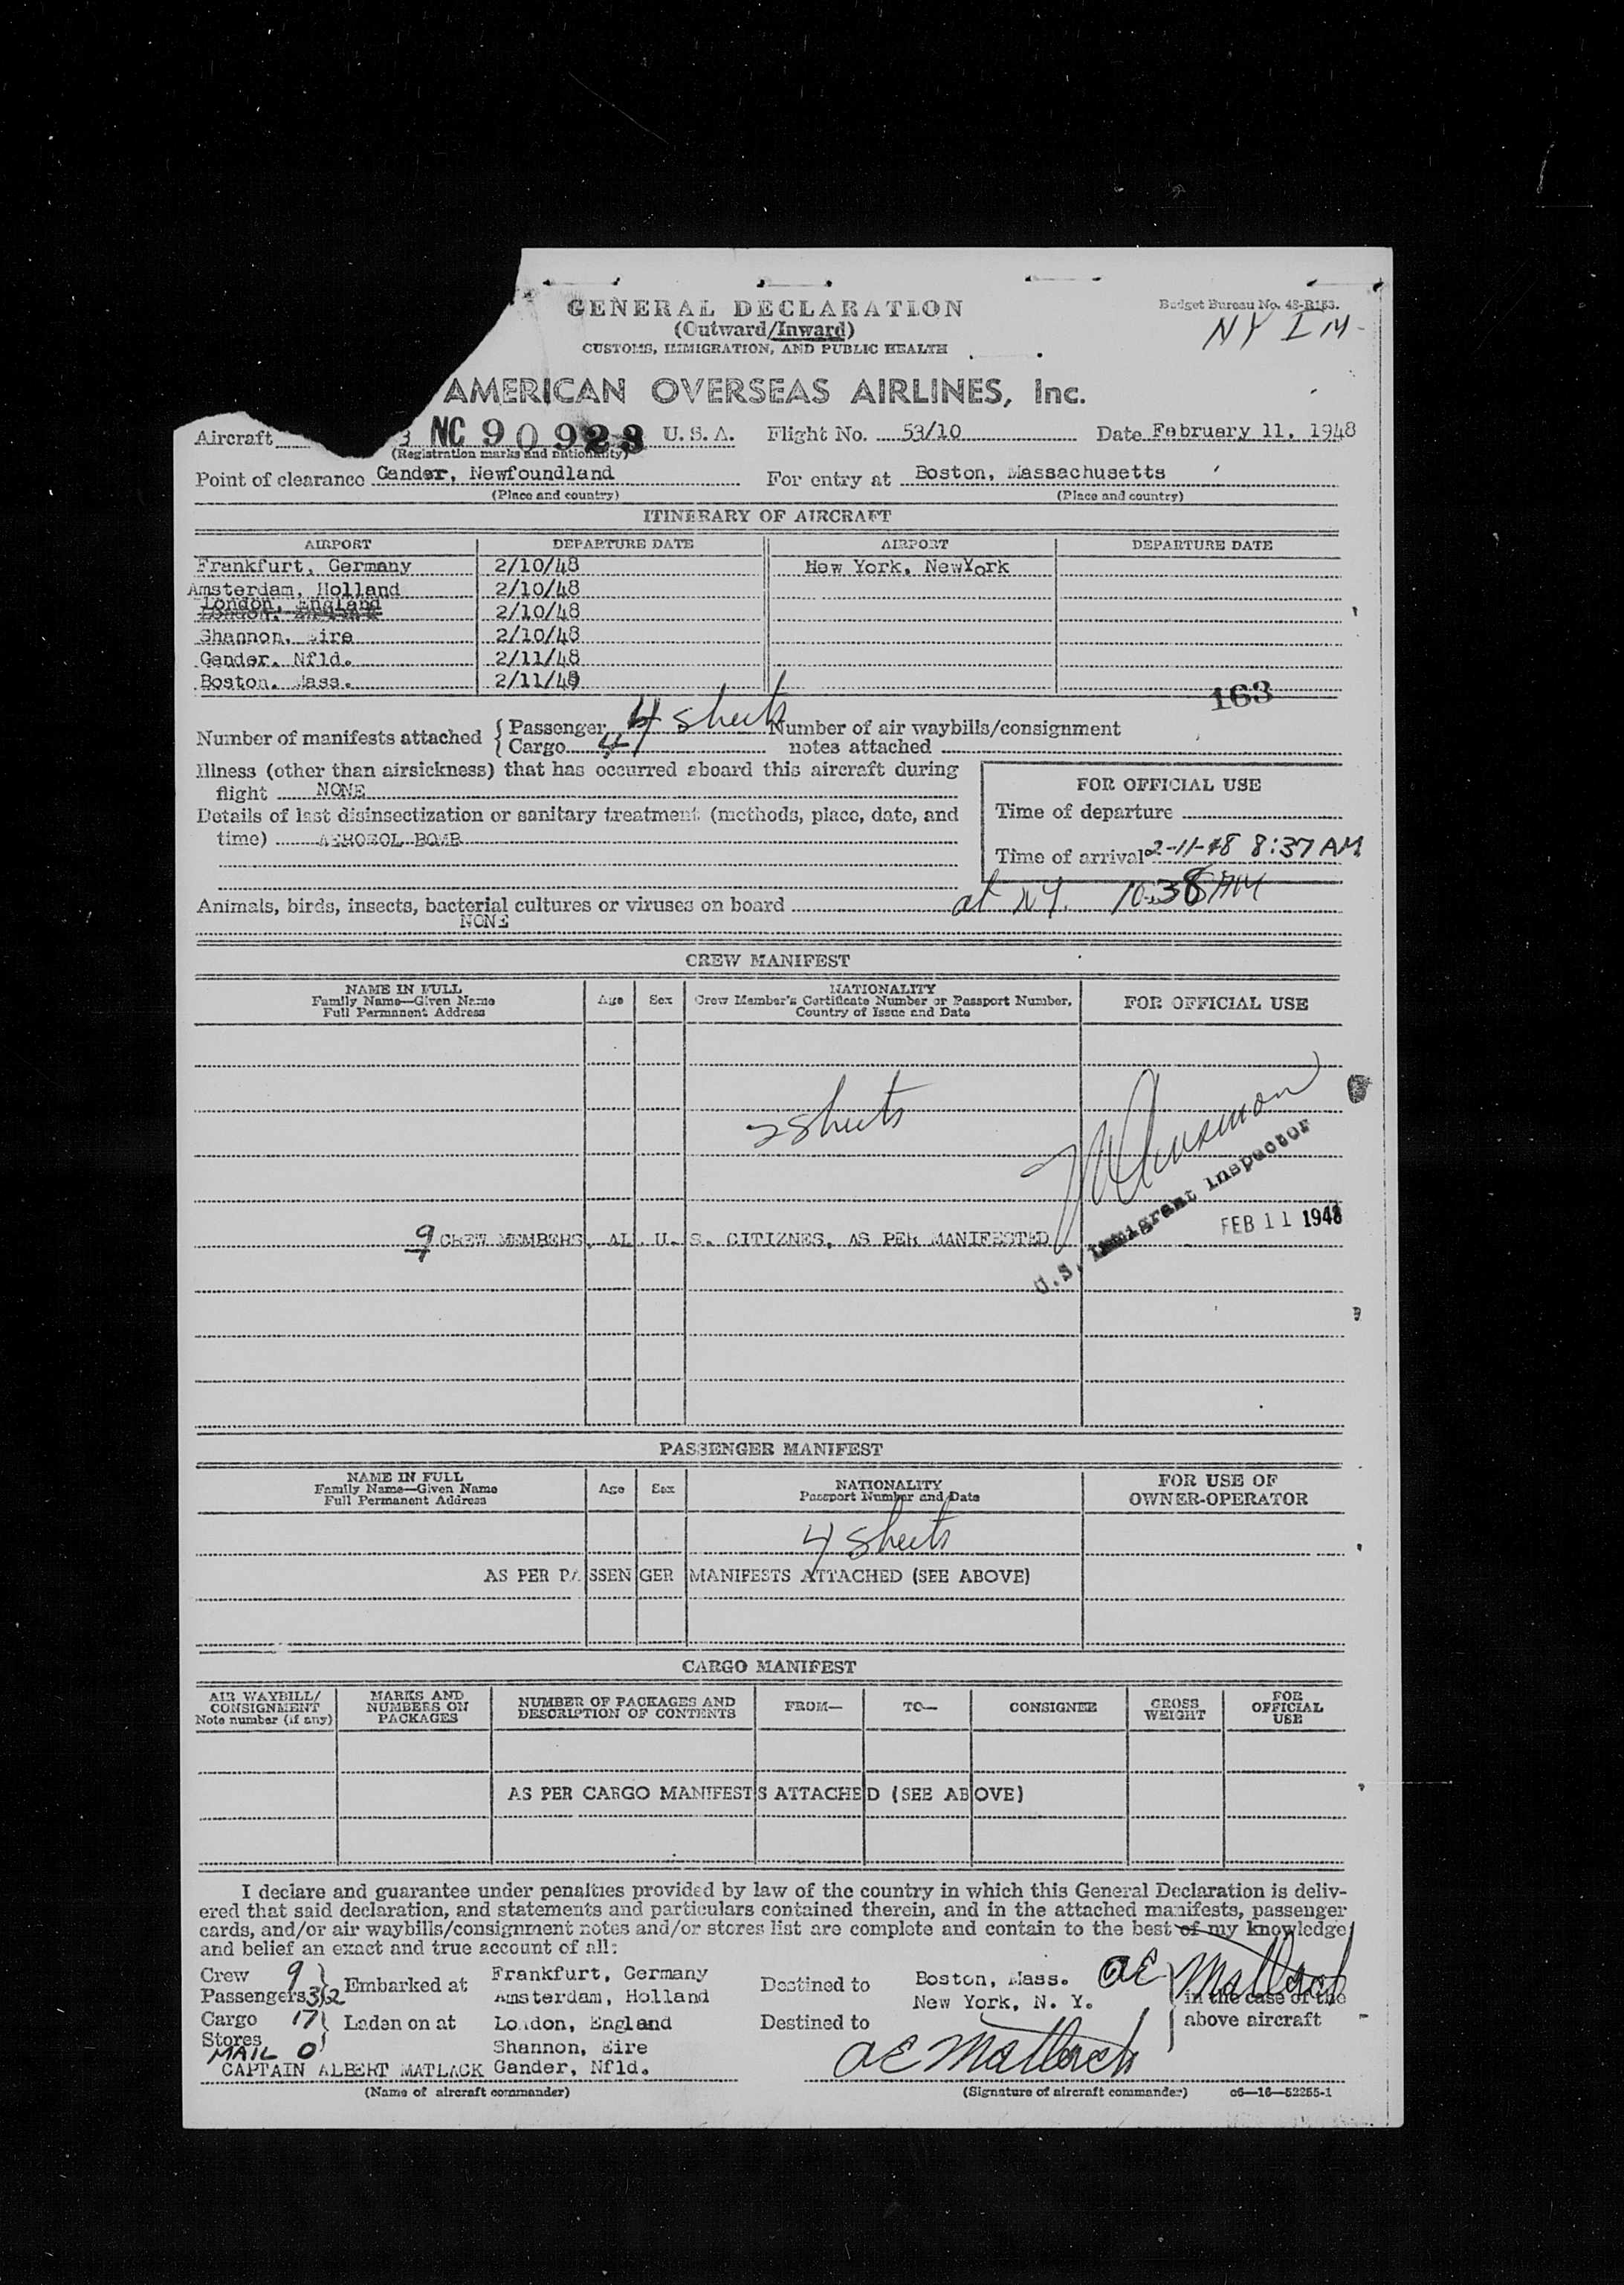 GENERAL DECLARATION
(Outward/Inward)
CUSTOMS, IMMIGRATION, AND PUBLIC HEALTH
Budget Bureau No. 43-R153.
NY I M
AMERICAN OVERSEAS AIRLINES, Inc.
Aircraft NC 90923 U. S. A. Flight No. 53/10 Date February 11, 1948
(Registration marks and nationality)
Point of clearance Gander, Newfoundland For entry at Boston, Massachusetts
(Place and country) (Place and country)
ITINERARY OF AIRCRAFT
AIRPORT DEPARTURE DATE AIRPORT DEPARTURE DATE
Frankfurt, Germany 2/10/48 New York, NewYork
Amsterdam, Holland 2/10/48
London, England 2/10/48
Shannon, Eire 2/10/48
Gander, Nfld. 2/11/48
Boston, Mass. 2/11/48
163
Number of manifests attached { Passenger 4 sheets Number of air waybills/consignment
Cargo 4 notes attached
Illness (other than airsickness) that has occurred aboard this aircraft during
flight NONE
Details of last disinsectization or sanitary treatment (methods, place, date, and
time) AEROSOL BOMB
FOR OFFICIAL USE
Time of departure
Time of arrival 2-11-48 8:37 AM
at NY. 10:38 AM
Animals, birds, insects, bacterial cultures or viruses on board
NONE
CREW MANIFEST
NAME IN FULL
Family Name—Given Name
Full Permanent Address
Age Sex
NATIONALITY
Crew Member's Certificate Number or Passport Number,
Country of Issue and Date
FOR OFFICIAL USE
2 sheets
U.S. Immigrant Inspector
FEB 11 1948
9 CREW MEMBERS, AL. U. S. CITIZNES, AS PER MANIFESTED
PASSENGER MANIFEST
NAME IN FULL
Family Name—Given Name
Full Permanent Address
Age Sex
NATIONALITY
Passport Number and Date
FOR USE OF
OWNER-OPERATOR
4 sheets
AS PER PASSENGER MANIFESTS ATTACHED (SEE ABOVE)
CARGO MANIFEST
AIR WAYBILL/
CONSIGNMENT
Note number (if any)
MARKS AND
NUMBERS ON
PACKAGES
NUMBER OF PACKAGES AND
DESCRIPTION OF CONTENTS
FROM— TO— CONSIGNEE
GROSS
WEIGHT
FOR
OFFICIAL
USE
AS PER CARGO MANIFESTS ATTACHED (SEE ABOVE)
I declare and guarantee under penalties provided by law of the country in which this General Declaration is deliv-
ered that said declaration, and statements and particulars contained therein, and in the attached manifests, passenger
cards, and/or air waybills/consignment notes and/or stores list are complete and contain to the best of my knowledge
and belief an exact and true account of all:
Crew 9
Passengers 32 } Embarked at Frankfurt, Germany Destined to Boston, Mass. AE Matlack
Amsterdam, Holland New York, N. Y. in the case of the
Cargo 17 } Laden on at London, England Destined to above aircraft
Stores Shannon, Eire
MAIL 0
CAPTAIN ALBERT MATLACK Gander, Nfld. AE Matlack
(Name of aircraft commander) (Signature of aircraft commander) c6—16—52255-1